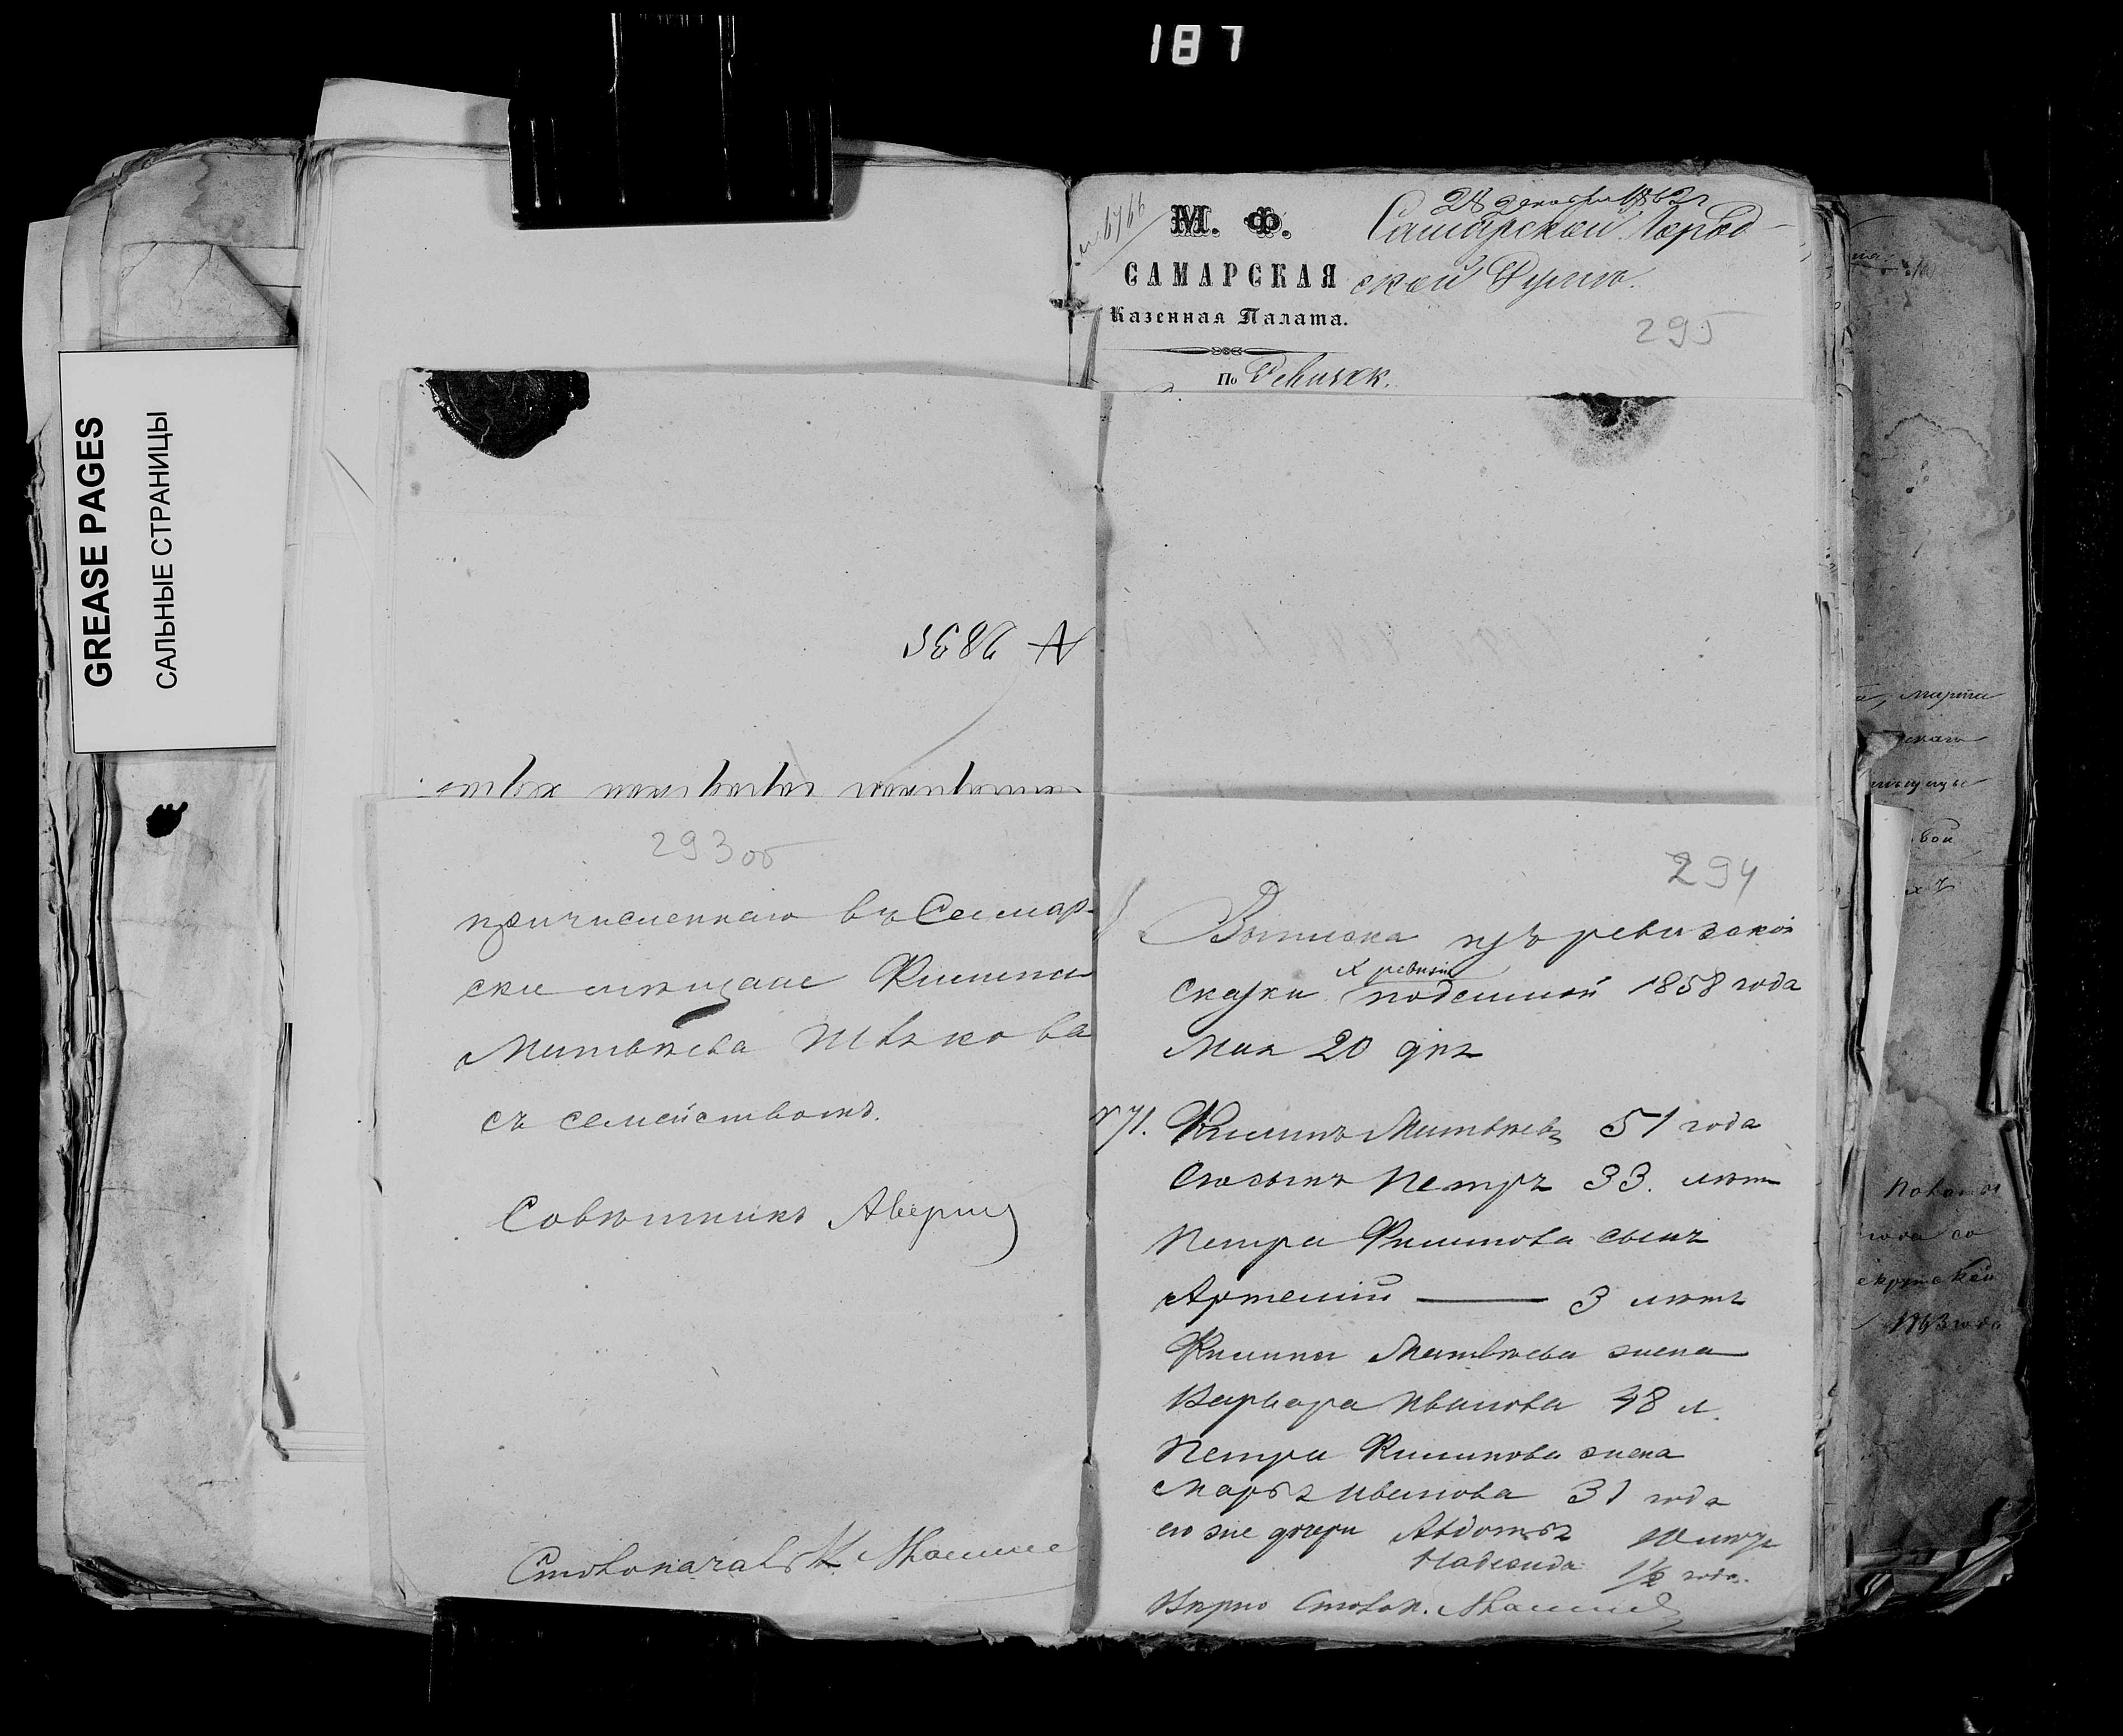 187
GREASE PAGES
САЛЬНЫЕ СТРАНИЦЫ
М. Ф.
САМАРСКАЯ
Казенная Палата.
По Ревизск.
28 декабря 1862 г
Самарской Город-
ской Думѣ.
295
№ 2835
293 об
причисленнаго въ Самар-
скіе мѣщане Филипа
Матвѣева
съ семействомъ.
Совѣтникъ Аверин
Столоначаль
294
Выписка изъ ревизской
сказки X ревизіи поданной 1858 года
Мая 20 дня
№ 71. Филипъ Матвѣевъ 51 года
Его сынъ Петръ 33. лѣт
Петра Филипова сынъ
Артемий — 3 лѣтъ
Филипа Матвѣева жена
Варвара Иванова 48 л.
Петра Филипова жена
Марья Иванова 31 года
его же дочери Авдотья 10 лѣтъ
Надежда 1/2 года.
Вѣрно Столон.
марта
1863 года